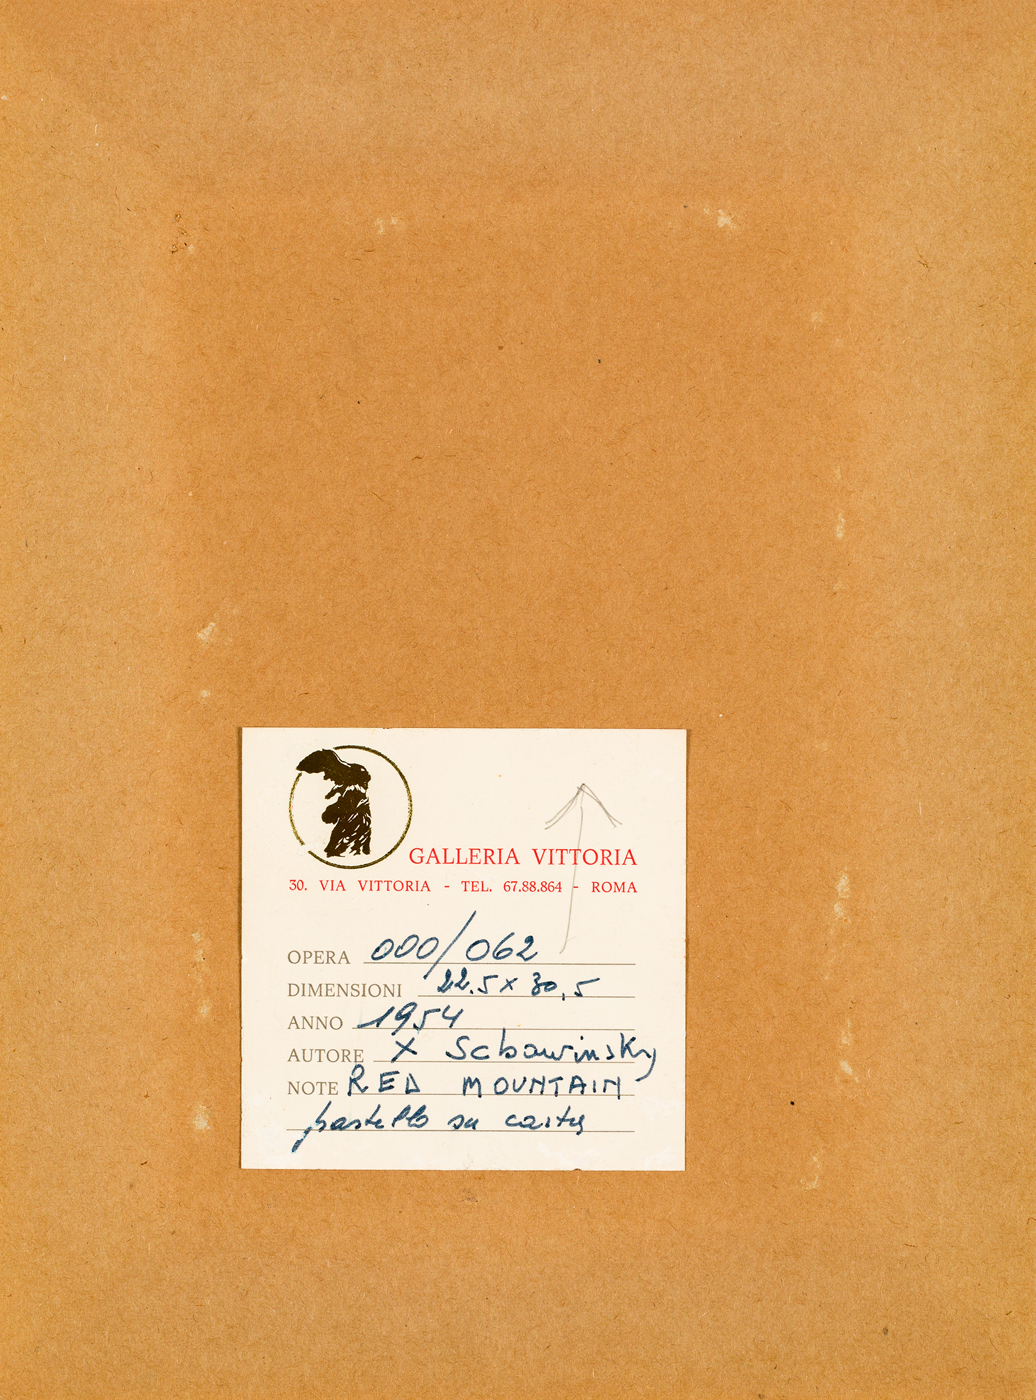 GALLERIA VITTORIA
30. VIA VITTORIA - TEL. 67.88.864 - ROMA
OPERA 000/062
DIMENSIONI 22.5 x 30,5
ANNO 1954
AUTORE X Schawinsky
NOTE RED MOUNTAIN
pastello su carta